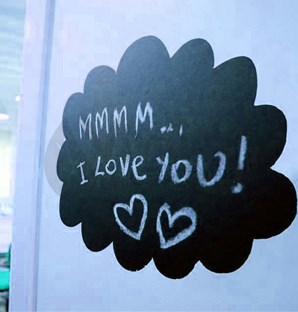 MMMM...
I LOVE YOU!